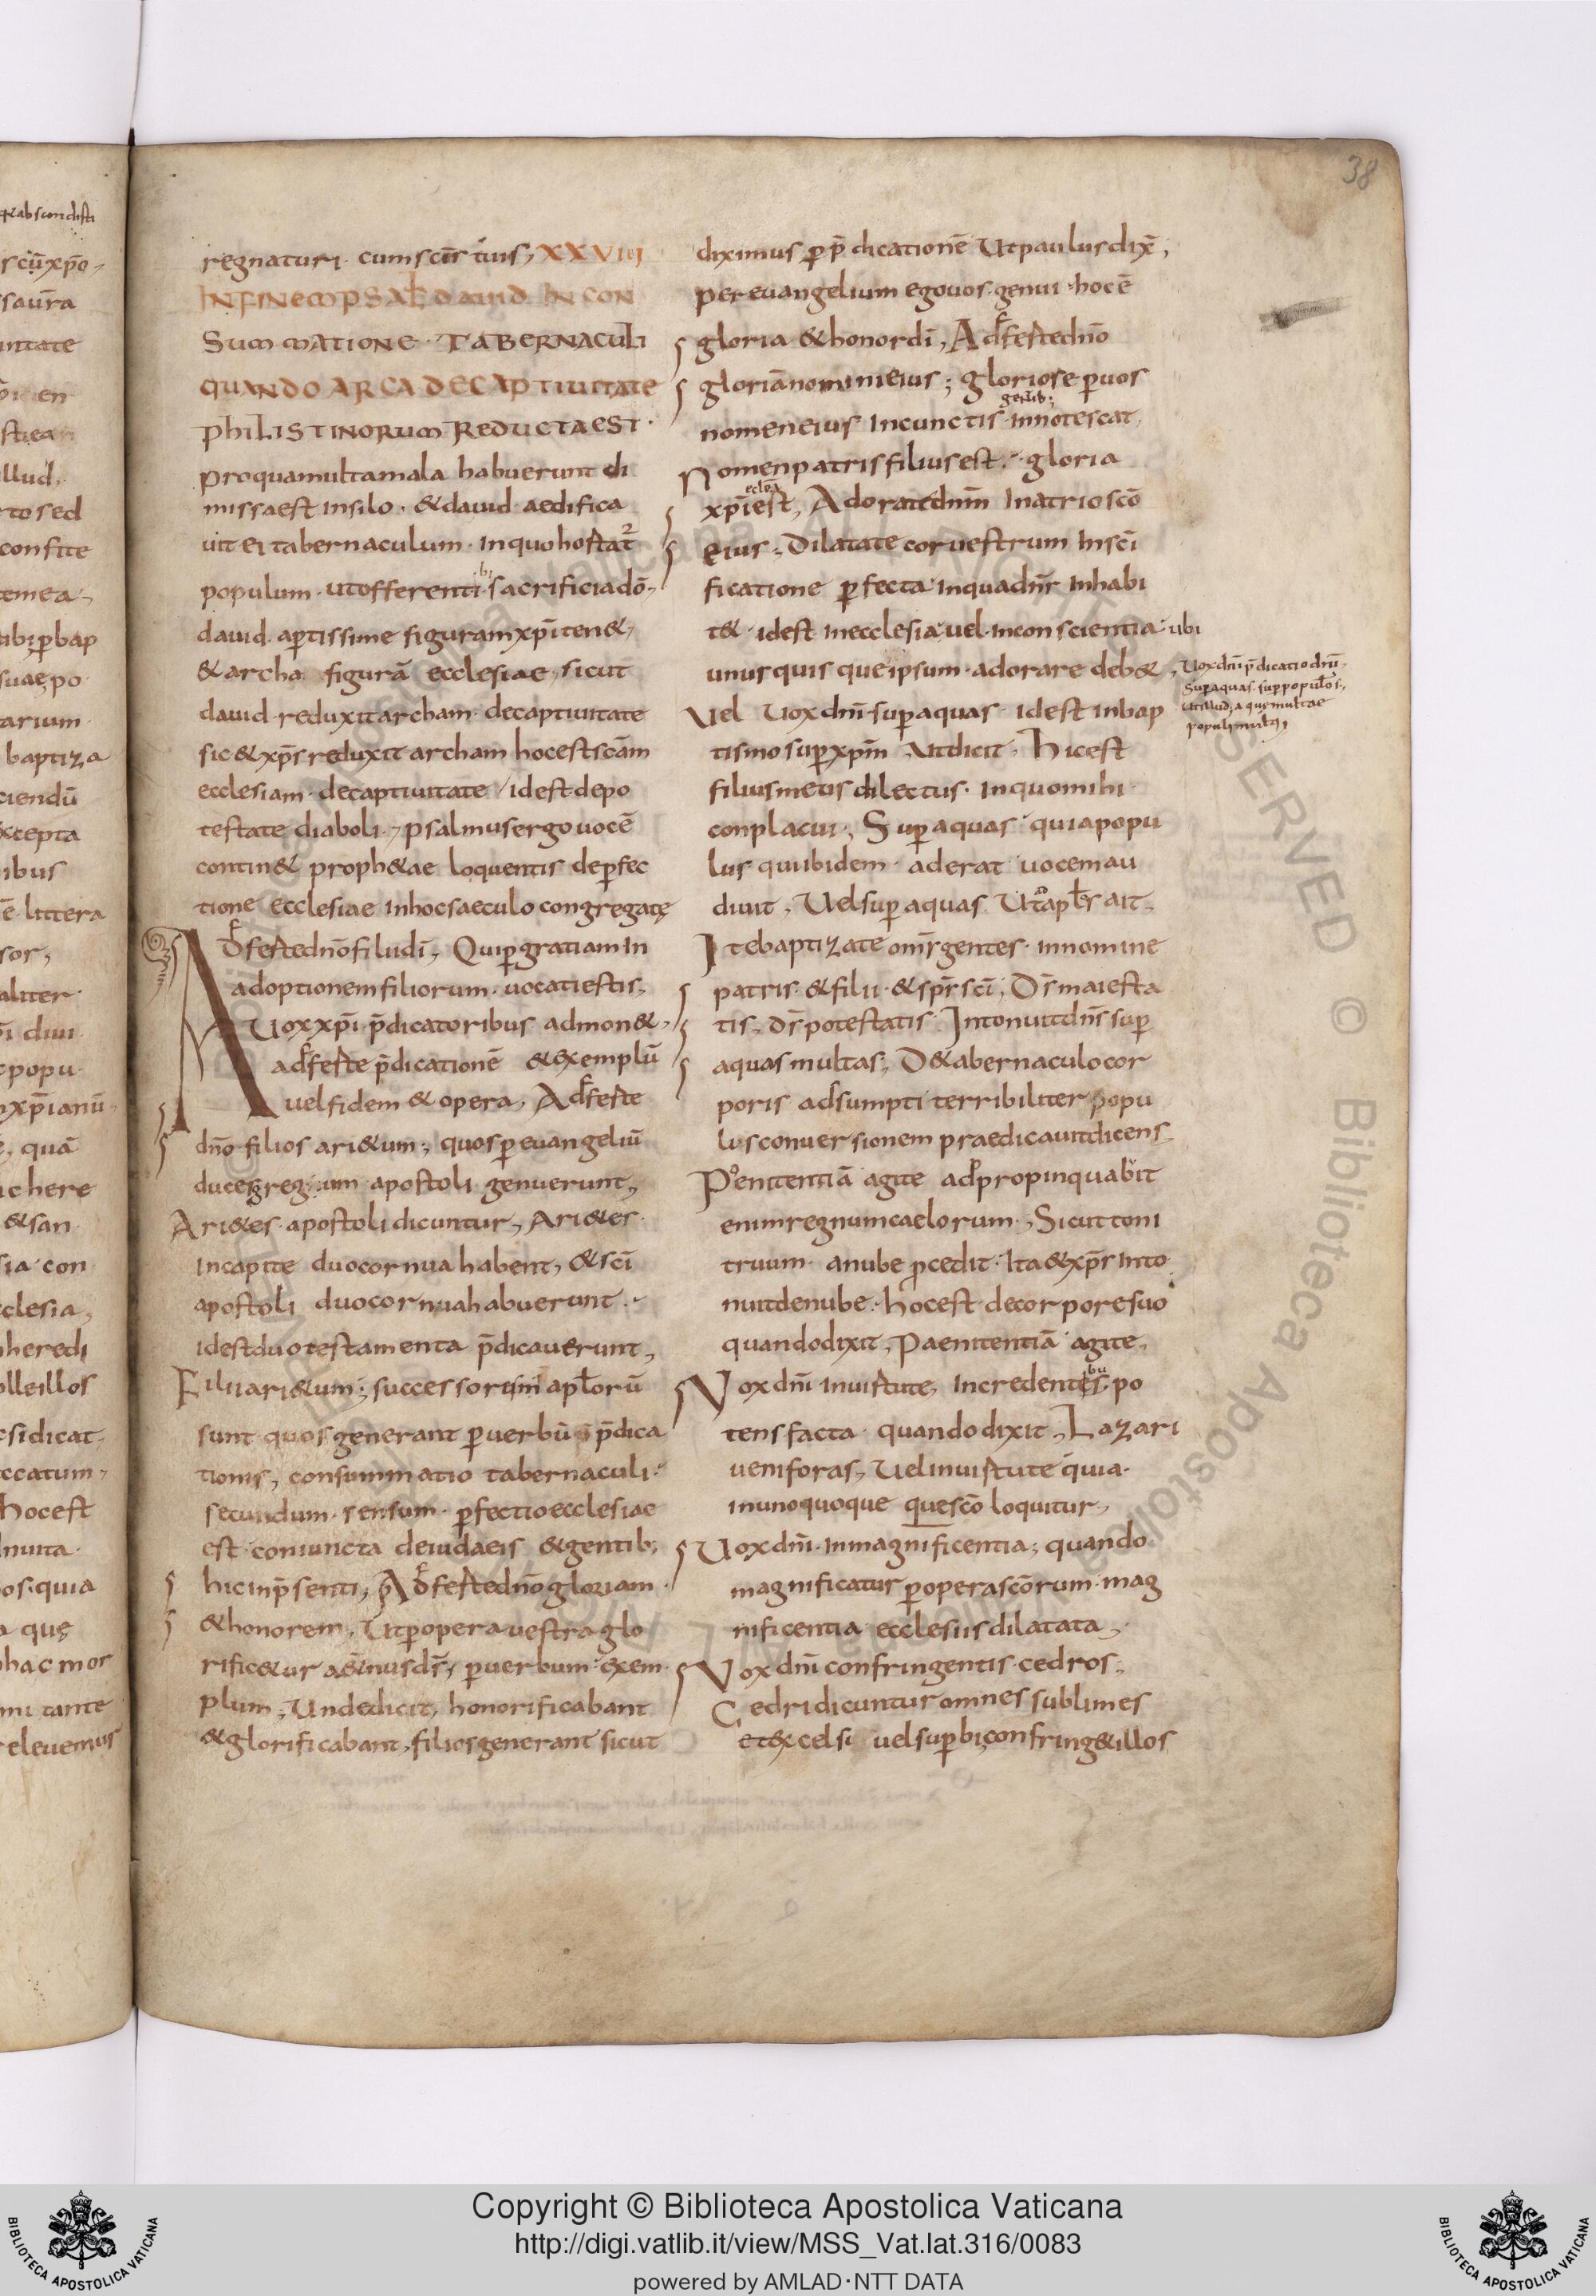 38
regnaturi · cum scīs tuis, XXVIII
IN FINEM PSAL̄ DAVID IN CON
SUMMATIONE · TABERNACULI
QUANDO ARCA DE CAPTIUITATE
PHILISTINORUM REDUCTA EST ·
pro qua multa mala habuerunt di
missa est in silo · & dauid aedifica
uit ei tabernaculum · in quo hortat̄
populum · ut offerenti sacrificia dō
dauid aptissime figuram xp̄i ten&
& archa figurā ecclesiae, sicut
dauid · reduxit archam · de captiuitate
sic & xp̄s reduxit archam hoc est scām
ecclesiam · de captiuitate / id est de po
testate diaboli · psalmus ergo uocē
contin& proph&ae loquentis de p̄fec
tione ecclesiae in hoc saeculo congregatę
Adferte dn̄o filii dī, Qui p̄ gratiam in
adoptionem filiorum · uocati estis,
Uox xp̄i p̄dicatoribus admon&,
adferte p̄dicationē & exemplū
uel fidem & opera, Adferte
dn̄o filios ari&um; quos p̄ euangeliū
duces gregum apostoli genuerunt,
Ari&es apostoli dicuntur, Ari&es
in capite duo cornua habent, & scī
apostoli duo cornua habuerunt ·
id est duo testamenta p̄dicauerunt,
Filii ari&um; successores apl̄orū
sunt quos generant p̄ uerbū p̄dica
tionis, consummatio tabernaculi
secundum · sensum · p̄fectio ecclesiae
est coniuncta de iudaeis & gentib;
hic in p̄senti, Adferte dn̄o gloriam
& honorem, Ut p̄ opera uestra glo
rific&ur dr̄, p̄ uerbum exem
plum, Unde dicit, honorificabant
& glorificabant, filios generant sicut
diximus p̄ p̄dicationē Ut paulus dix̄,
per euangelium ego uos genui · hoc ē
gloria & honor dī, Adferte dn̄o
gloriā nomini eius; gloriose p̄ uos
gentib;
nomen eius in cunctis innotescat,
Nomen patris filius est · gloria
ecl̄ea
xp̄i est, Adorate dnm̄ in atrio scō
eius, Dilatate cor uestrum in scī
ficatione p̄fecta in qua dn̄s inhabi
t& · id est in ecclesia uel in conscientia ubi
unus quisque ipsum adorare deb&,
Uel Uox dn̄i sup̄ aquas · id est in bap
tismo sup̄ xp̄m Ut dicit, Hic est
filius meus dilectus · in quo mihi
conplacui, Sup̄ aquas quia popu
lus qui ibidem · aderat uocem au
diuit, Uel sup̄ aquas Ut apl̄s ait
Ite baptizate om̄s gentes · in nomine
patris & filii & sp̄s scī, Dr̄ maiesta
tis, dr̄ potestatis Intonuit dn̄s sup̄
aquas multas, De tabernaculo cor
poris adsumpti terribiliter popu
lus conuersionem praedicauit dicens
Penitentiā agite adpropinquabit
enim regnum caelorum, Sicut toni
truum a nube p̄cedit Ita & xp̄s into
nuit de nube · hoc est de corpore suo
quando dixit, Paenitentiā agite,
Uox dn̄i in uirtute, In credentes po
tens facta quando dixit, Lazari
ueni foras, Uel in uirtute quia
in unoquoque loquitur,
Uox dn̄i in magnificentia; quando
magnificatur p̄ opera scōrum · mag
nificentia ecclesiis dilatata,
Uox dn̄i confringentis cedros;
Cedri dicuntur omnes sublimes
et excelsi uel sup̄bi, confring& illos
Uox dn̄i p̄dicatio dn̄i
Sup̄ aquas · sup̄ populos,
Ut illud; aque multae
populi multi,
Copyright © Biblioteca Apostolica Vaticana
http://digi.vatlib.it/view/MSS_Vat.lat.316/0083
powered by AMLAD·NTT DATA
BIBLIOTECA APOSTOLICA VATICANA
BIBLIOTECA APOSTOLICA VATICANA